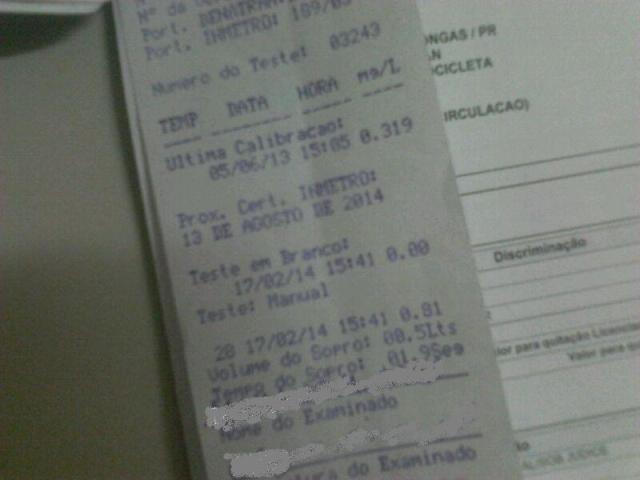 Nº da
Port. DENATRAN:
Port. INMETRO: 189/03
Numero do Teste: 03243
TEMP DATA HORA mg/L
Ultima Calibracao:
05/06/13 15:05 0.319
Prox. Cert. INMETRO:
13 DE AGOSTO DE 2014
Teste em Branco:
17/02/14 15:41 0.00
Teste: Manual
28 17/02/14 15:41 0.81
Volume do Sopro: 08.5Lts
Tempo do Sopro: 01.9Seg
Nome do Examinado
do Examinado
ONGAS / PR
OCICLETA
IRCULACAO)
Discriminação
lor para quitação
Valor para